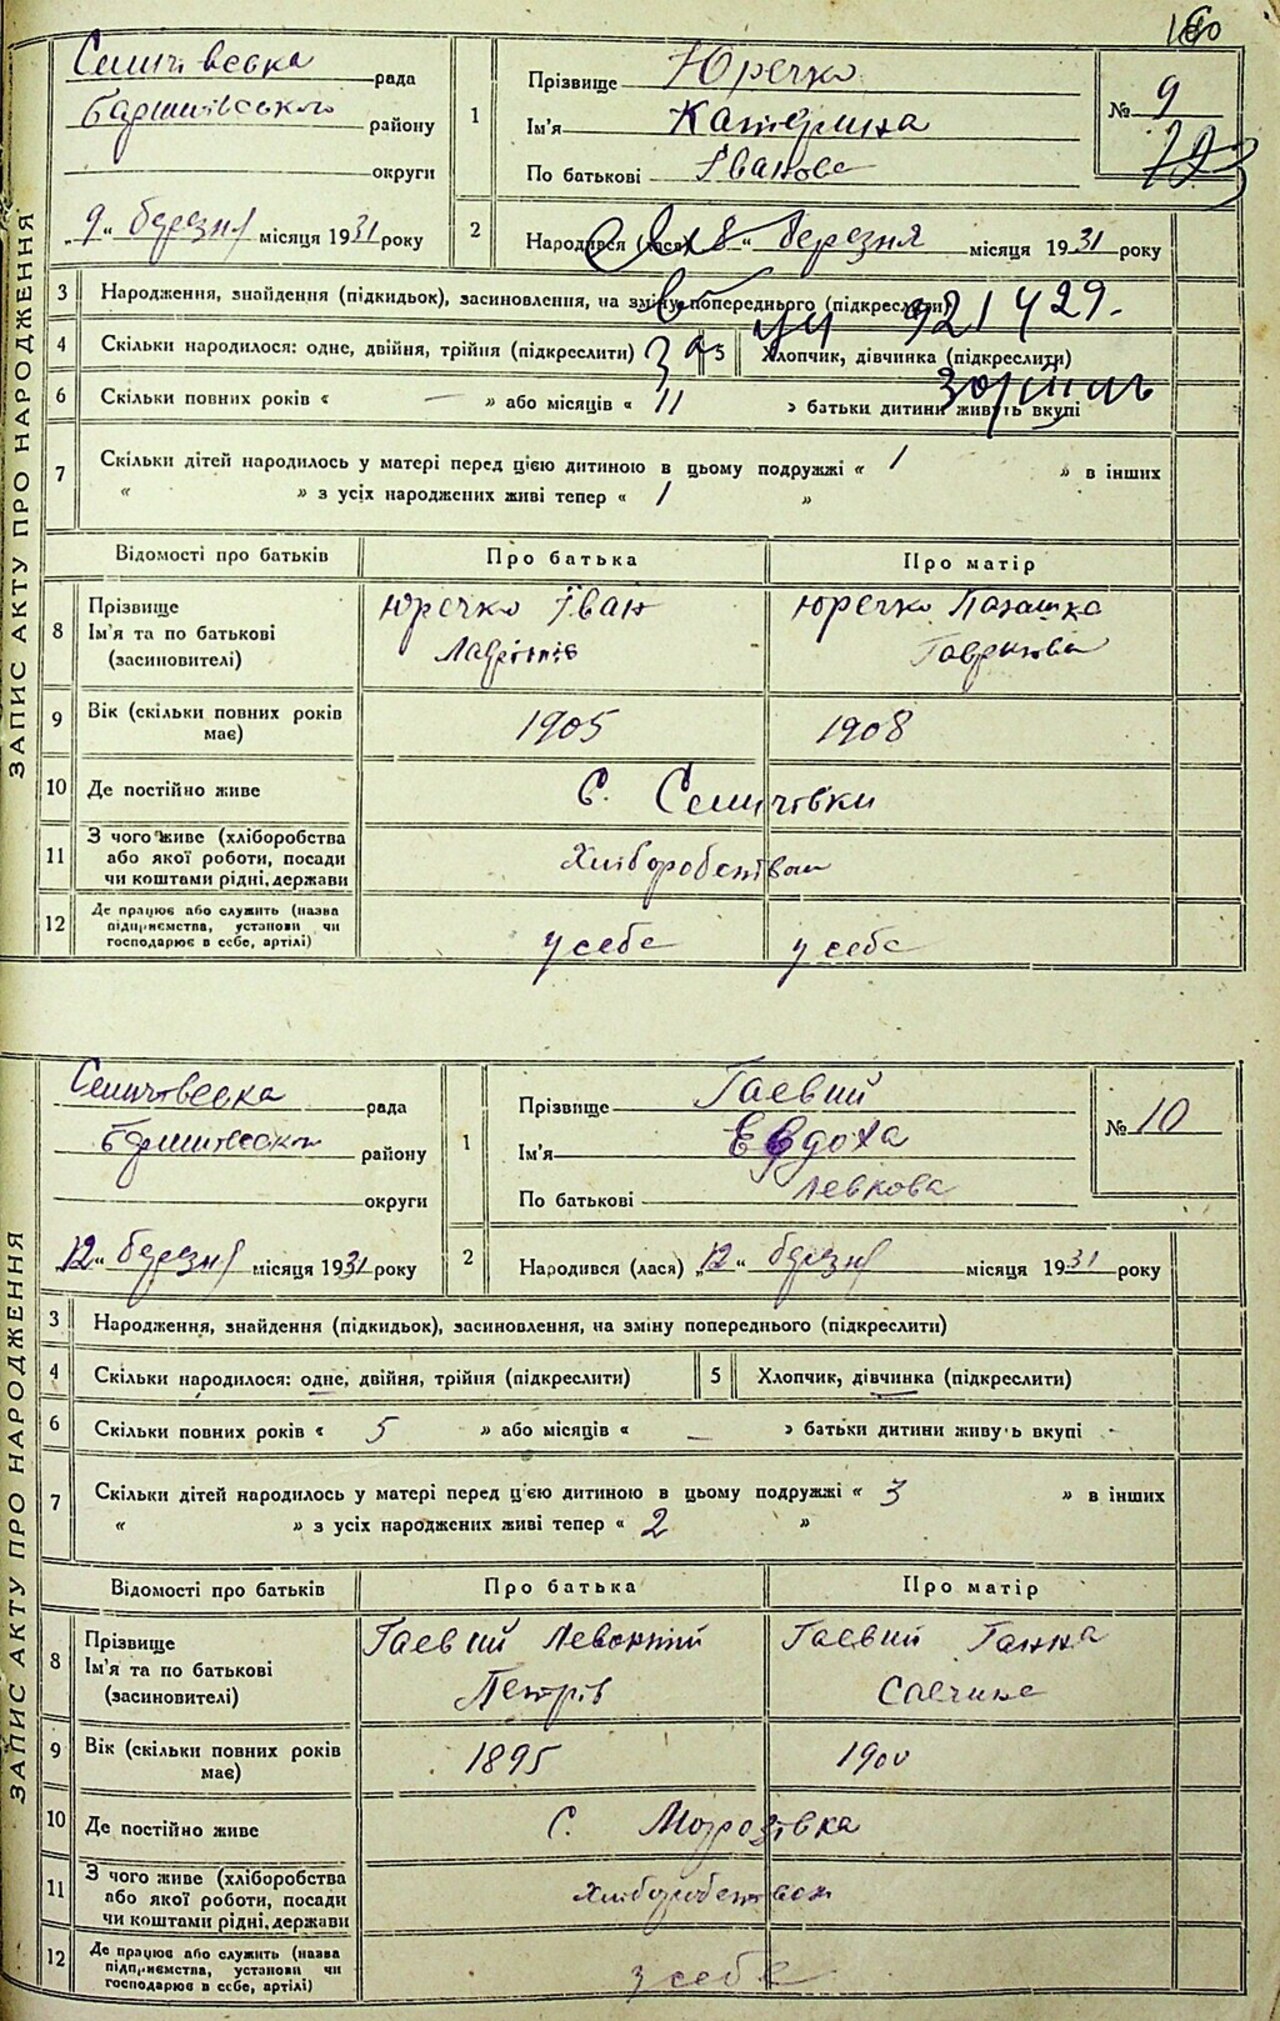 ЗАПИС АКТУ ПРО НАРОДЖЕННЯ
Семичівська рада
Баришівського району
округи
„9“ березня місяця 1931 року
1
Прізвище Юречко
Ім'я Катерина
По батькові Іванова
№ 9
2
Народився (лася) „8“ березня місяця 1931 року
3 Народження, знайдення (підкидьок), засиновлення, на зміну попереднього (підкреслити)
921429.
4 Скільки народилося: одне, двійня, трійня (підкреслити) 5 Хлопчик, дівчинка (підкреслити)
6 Скільки повних років « — » або місяців « 11 » батьки дитини живуть вкупі
7 Скільки дітей народилось у матері перед цією дитиною в цьому подружжі « 1 » в інших
« » з усіх народжених живі тепер « 1 »
Відомості про батьків Про батька Про матір
8 Прізвище Ім'я та по батькові (засиновителі)
Юречко Іван
Юречко Палашка
Гаврилова
9 Вік (скільки повних років має) 1905 1908
10 Де постійно живе С. Семичівки
11 З чого живе (хліборобства або якої роботи, посади чи коштами рідні, держави Хліборобством
12 Де працює або служить (назва підприємства, установи чи господарює в себе, артілі) у себе у себе
ЗАПИС АКТУ ПРО НАРОДЖЕННЯ
Семичівська рада
Баришівськог району
округи
„12“ березня місяця 1931 року
1
Прізвище Гаєвий
Ім'я Евдоха
По батькові Левкова
№ 10
2
Народився (лася) „12“ березня місяця 1931 року
3 Народження, знайдення (підкидьок), засиновлення, на зміну попереднього (підкреслити)
4 Скільки народилося: одне, двійня, трійня (підкреслити) 5 Хлопчик, дівчинка (підкреслити)
6 Скільки повних років « 5 » або місяців « — » батьки дитини живуть вкупі
7 Скільки дітей народилось у матері перед цією дитиною в цьому подружжі « 3 » в інших
« » з усіх народжених живі тепер « 2 »
Відомості про батьків Про батька Про матір
8 Прізвище Ім'я та по батькові (засиновителі)
Гаєвий Левонтій
Петрів
Гаєвий Ганна
Савчина
9 Вік (скільки повних років має) 1895 1900
10 Де постійно живе С. Морозівка
11 З чого живе (хліборобства або якої роботи, посади чи коштами рідні, держави Хліборобством
12 Де працює або служить (назва підприємства, установи чи господарює в себе, артілі) у себе